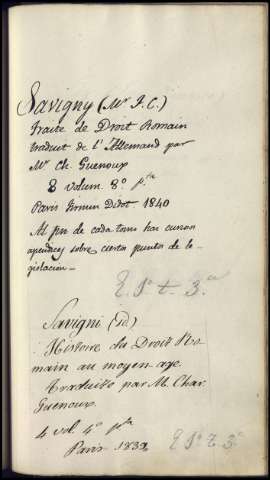 Savigny (Mr F.C.)
Traité de Droit Romain
traduit de l'Allemand par
Mr Ch. Guenoux
8 volum. 8º pta
Paris Firmin Didot 1840
Al fin de cada tomo hai curiosos
apendices sobre ciertos puntos de le-
gislacion.
E. 1º t. 3.a
Savigni (Id.)
Histoire du Droit Ro-
main au moyen age
traduite par M. Char.
Guenoux.
4 vol. 4º pta
Paris 1839
E 1º t. 3ª